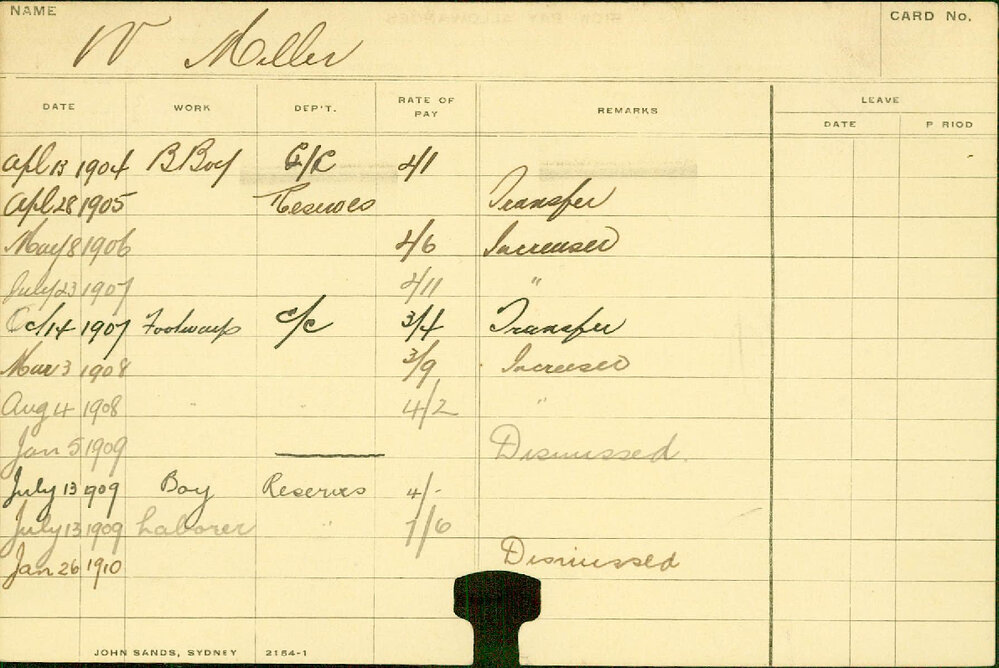 NAME W Miller CARD No.
DATE WORK DEP'T. RATE OF PAY REMARKS LEAVE
DATE P RIOD
Apl 13 1904 B. Boy C/C
Apl 28 1905 Reserves Transfer
May 8 1906 2/6 Increased
July 23 1907 2/11 "
Oct 14 1907 Footways C/C 3/4 Transfer
Mar 3 1908 3/9 Increased
Aug 4 1908 4/2 "
Jan 5 1909 Dismissed.
July 13 1909 Boy Reserves 4/-
July 13 1909 Laborer " 7/6
Jan 26 1910 Dismissed
JOHN SANDS, SYDNEY 2164-1